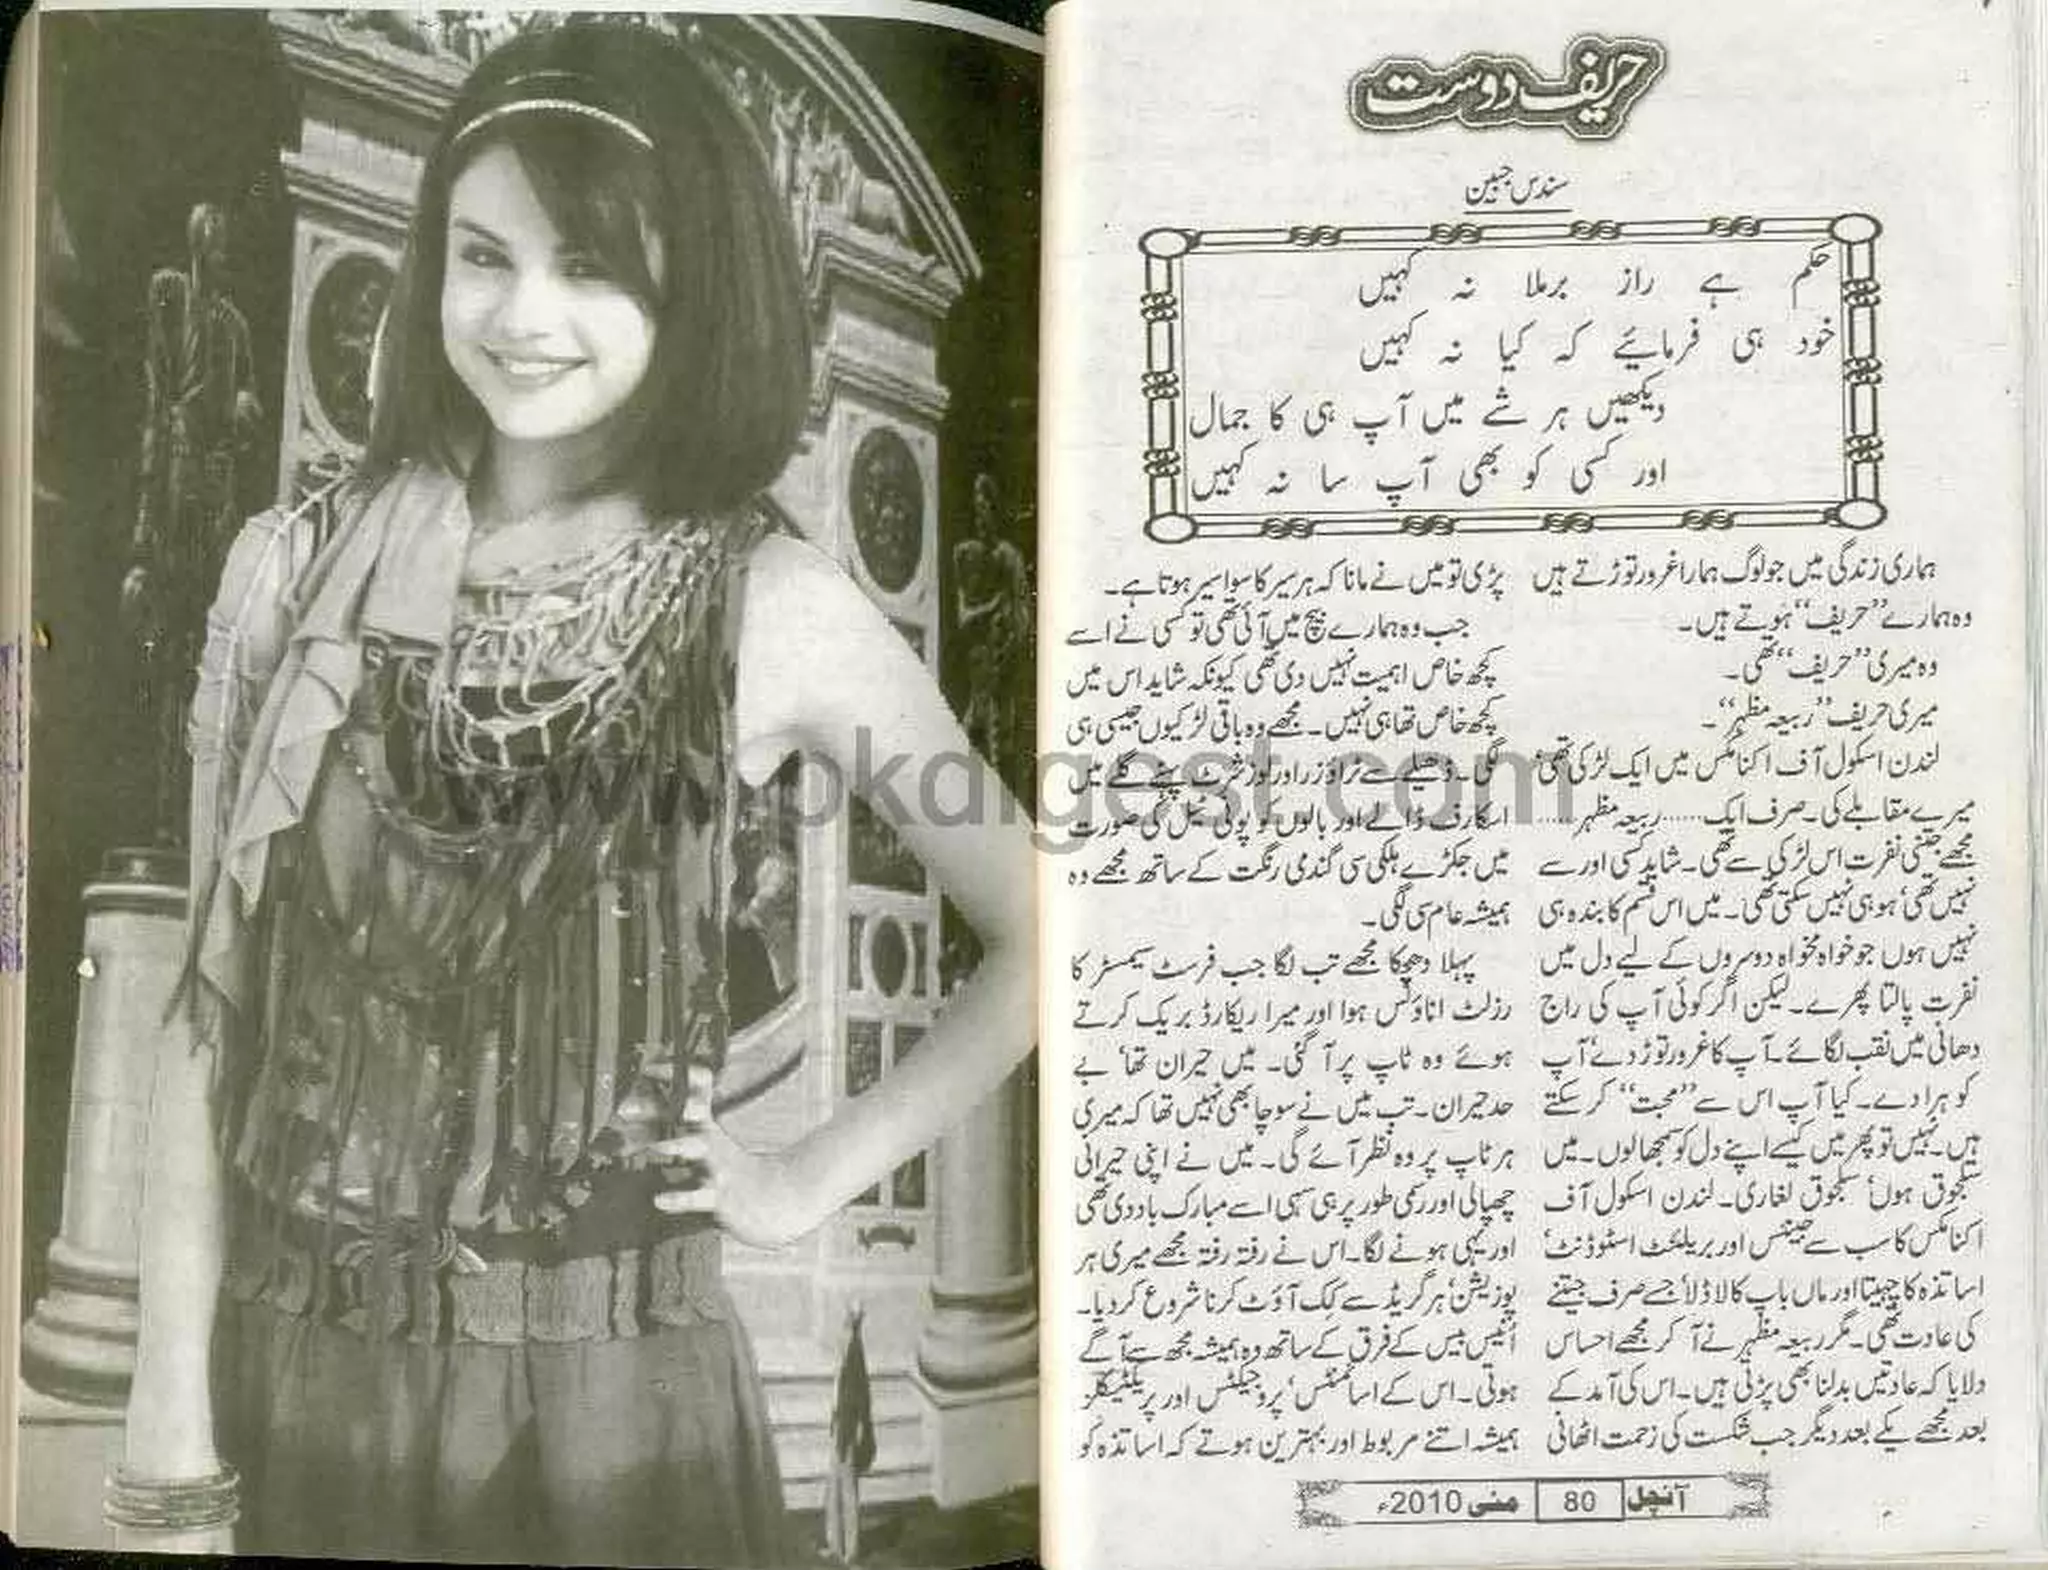 حریف دوست
سندس جبین
حکم ہے راز برملا نہ کہیں
خود ہی فرمائیے کہ کیا نہ کہیں
دیکھیں ہر شے میں آپ ہی کا جمال
اور کسی کو بھی آپ سا نہ کہیں
ہماری زندگی میں جو لوگ ہمارا غرور توڑتے ہیں
وہ ہمارے ”حریف“ ہوتے ہیں۔
وہ میری ”حریف“ تھی۔
میری حریف ”ربیعہ مظہر“۔
لندن اسکول آف اکنامکس میں ایک لڑکی تھی‘
میرے مقابلے کی۔ صرف ایک...... ربیعہ مظہر....
مجھے جتنی نفرت اس لڑکی سے تھی۔ شاید کسی اور سے
نہیں تھی‘ ہو ہی نہیں سکتی تھی۔ میں اس قسم کا بندہ ہی
نہیں ہوں جو خواہ مخواہ دوسروں کے لیے دل میں
نفرت پالتا پھرے۔ لیکن اگر کوئی آپ کی راج
دھانی میں نقب لگائے۔ آپ کا غرور توڑ دے‘ آپ
کو ہرا دے۔ کیا آپ اس سے ”محبت“ کر سکتے
ہیں۔ نہیں تو پھر میں کیسے اپنے دل کو سمجھالوں۔ میں
سلجوق ہوں‘ سلجوق لغاری۔ لندن اسکول آف
اکنامکس کا سب سے جینئس اور بریلئنٹ اسٹوڈنٹ‘
اساتذہ کا چہیتا اور ماں باپ کا لاڈلا‘ جسے صرف جیتنے
کی عادت تھی۔ مگر ربیعہ مظہر نے آ کر مجھے احساس
دلایا کہ عادتیں بدلنا بھی پڑتی ہیں۔ اس کی آمد کے
بعد مجھے یکے بعد دیگر جب شکست کی زحمت اٹھانی
پڑی تو میں نے مانا کہ ہر سیر کا سوا سیر ہوتا ہے۔
جب وہ ہمارے بیچ میں آئی تھی تو کسی نے اسے
کچھ خاص اہمیت نہیں دی تھی کیونکہ شاید اس میں
کچھ خاص تھا ہی نہیں۔ مجھے وہ باقی لڑکیوں جیسی ہی
لگی۔ ڈھیلے سے ٹراؤزر اور لوز شرٹ پہنے گلے میں
اسکارف ڈالے اور بالوں کو پونی ٹیل کی صورت
میں جکڑے ہلکی سی گندمی رنگت کے ساتھ مجھے وہ
ہمیشہ عام سی لگی۔
پہلا دھچکا مجھے تب لگا جب فرسٹ سیمسٹر کا
رزلٹ اناؤنس ہوا اور میرا ریکارڈ بریک کرتے
ہوئے وہ ٹاپ پر آ گئی۔ میں حیران تھا‘ بے
حد حیران۔ تب میں نے سوچا بھی نہیں تھا کہ میری
ہر ٹاپ پر وہ نظر آئے گی۔ میں نے اپنی حیرانی
چھپالی اور رسمی طور پر ہی سہی اسے مبارک باد دی تھی
اور یہی ہونے لگا۔ اس نے رفتہ رفتہ مجھے میری ہر
پوزیشن‘ ہر گریڈ سے کک آؤٹ کرنا شروع کر دیا۔
انیس بیس کے فرق کے ساتھ وہ ہمیشہ مجھ سے آگے
ہوتی۔ اس کے اسائمنٹس‘ پروجیکٹس اور پریکٹیکلز
ہمیشہ اتنے مربوط اور بہترین ہوتے کہ اساتذہ کو
آنچل 80 مئی 2010ء
www.pkdigest.com